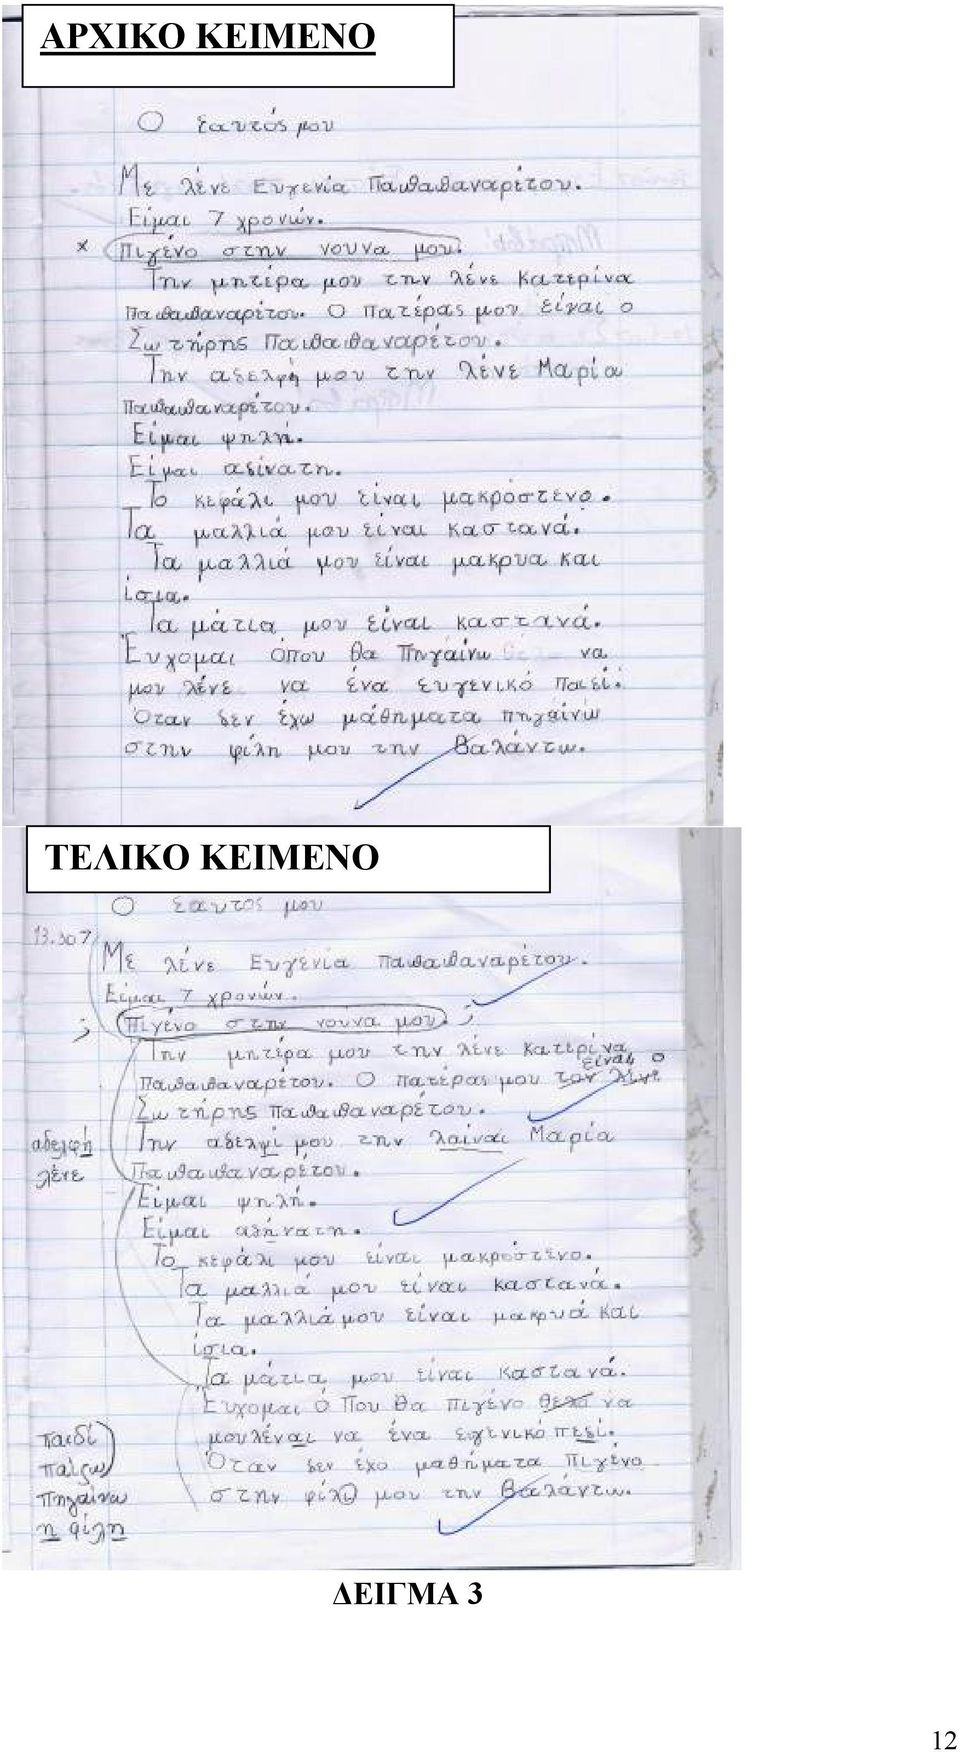 ΑΡΧΙΚΟ ΚΕΙΜΕΝΟ
Ο εαυτός μου
Με λένε Ευγενία Παπαπαναρέτου.
Είμαι 7 χρονών.
x (Πιγένο στην νουνα μου.
Την μητέρα μου την λένε Κατερίνα
Παπαπαναρέτου. Ο πατέρας μου είναι ο
Σωτήρης Παπαπαναρέτου.
Την αδελφή μου την λένε Μαρία
Παπαπαναρέτου.
Είμαι ψηλή.
Είμαι αδίνατη.
Το κεφάλι μου είναι μακρόστενο.
Τα μαλλιά μου είναι καστανά.
Τα μαλλιά μου είναι μακρυα και
ίσια.
Τα μάτια μου είναι καστανά.
Εύχομαι όπου θα πηγαίνω να
μου λένε να ένα ευγενικό παιεί.
Όταν δεν έχω μάθηματα πηγαίνω
στην φίλη μου την Βαλάντω.
ΤΕΛΙΚΟ ΚΕΙΜΕΝΟ
Ο εαυτος μου
Με λένε Ευγενία Παπαπαναρέτου.
Είμαι 7 χρονών.
; (Πιγένο στην νουνα μου. ;
Την μητέρα μου την λένε Κατερίνα
είναι ο
Παπαπαναρέτου. Ο πατέρας μου τον λένε
Σωτήρης Παπαπαναρέτου.
αδελφή Την αδελφί μου την λαίναι Μαρία
λένε Παπαπαναρέτου.
Είμαι ψηλή.
Είμαι αδήνατη.
Το κεφάλι μου είναι μακρόστενο.
Τα μαλλιά μου είναι καστανά.
Τα μαλλιά μου είναι μακρυά και
ίσια.
Τα μάτια μου είναι καστανά.
Εύχομαι ό που θα πιγένο θελο να
παιδί μου λέναι να ένα ευγενικό πεδί.
παίζω Όταν δεν έχο μαθήματα πιγένο
πηγαίνω στην φίλι μου την Βαλάντω.
η φίλη
ΔΕΙΓΜΑ 3
12